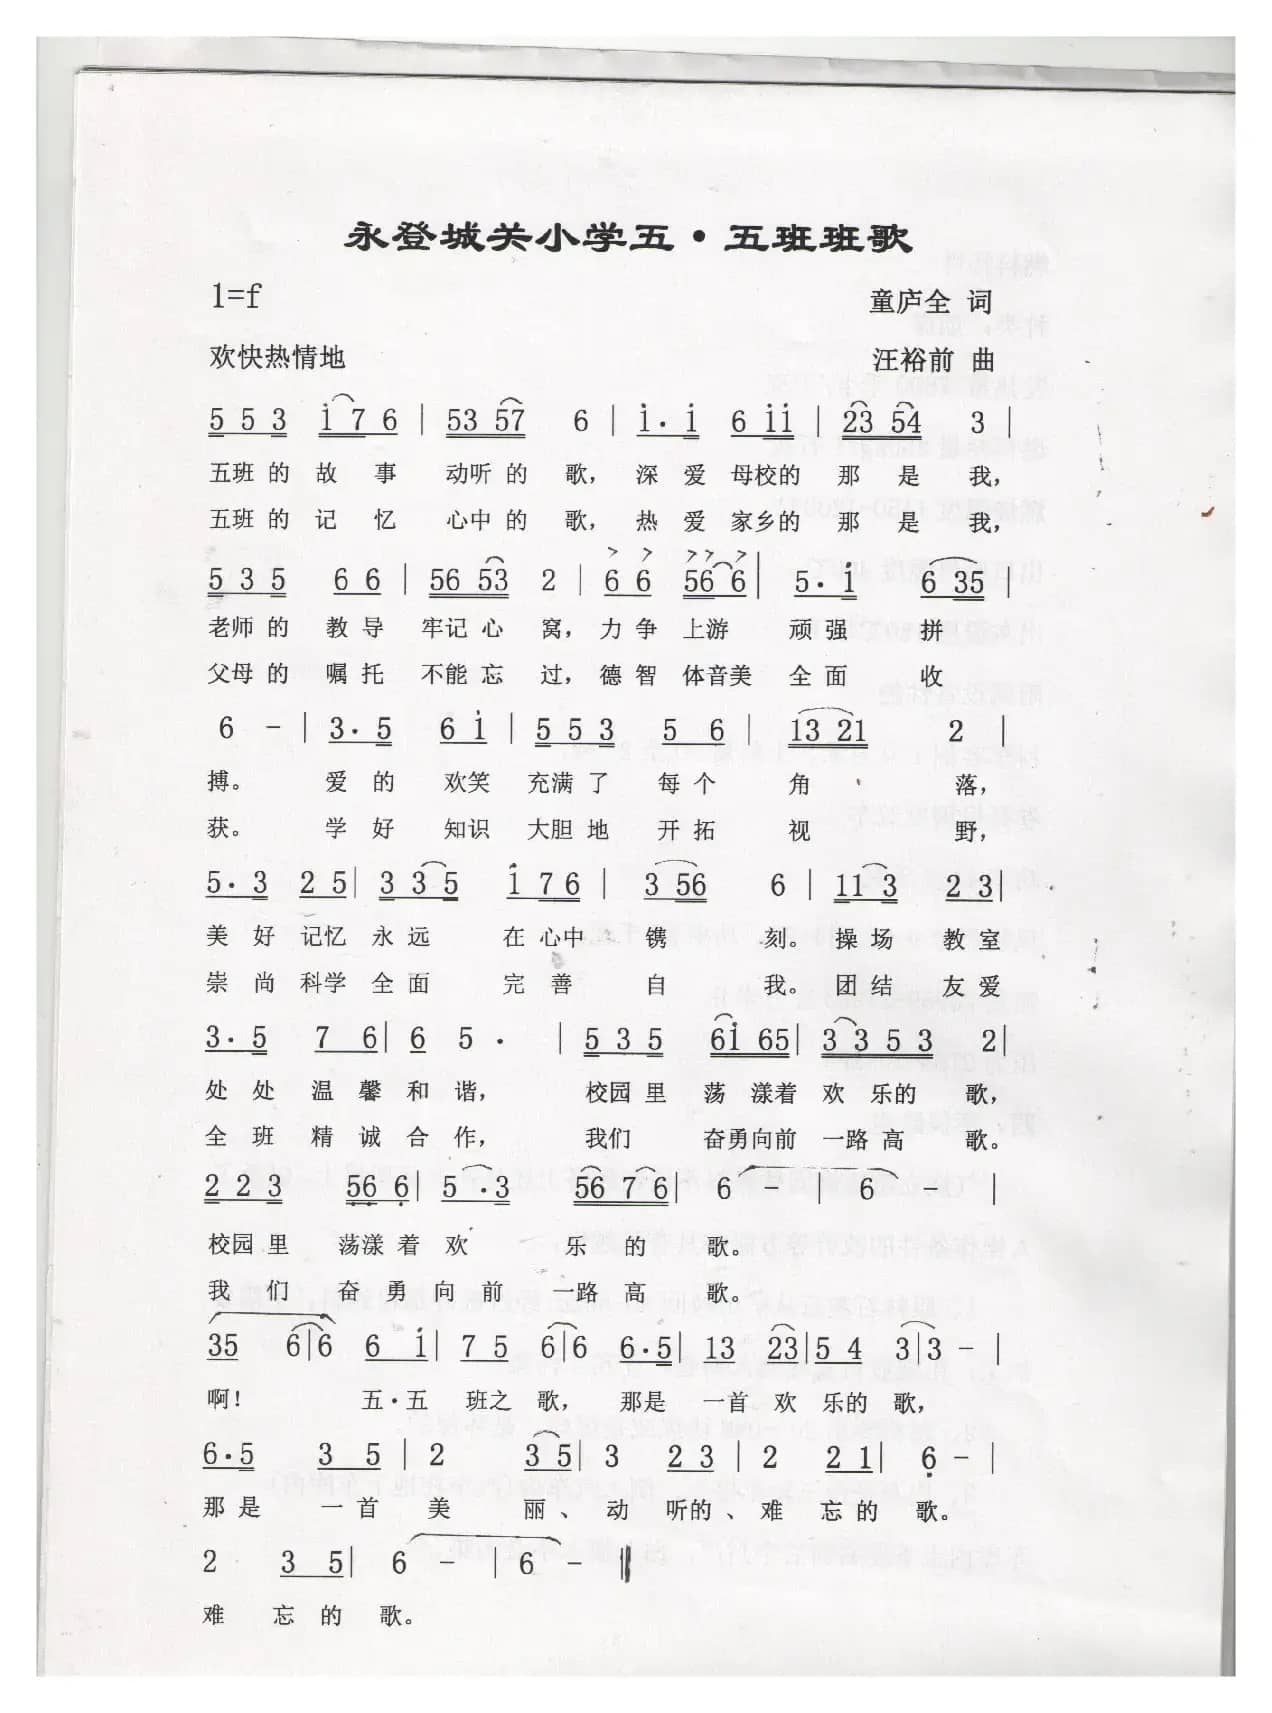 永登城关小学五·五班班歌
1=f
童庐全 词
欢快热情地
汪裕前 曲
5 5 3 i 7 6 | 53 57 6 | i· i 6 ii | 23 54 3 |
五班 的 故 事 动听 的 歌, 深 爱 母校的 那 是 我,
五班 的 记 忆 心中 的 歌, 热 爱 家乡的 那 是 我,
5 3 5 6 6 | 56 53 2 | 6 6 56 6 | 5· i 6 35 |
老师 的 教 导 牢记 心 窝, 力 争 上游 顽 强 拼
父母 的 嘱 托 不能 忘 过, 德 智 体音美 全 面 收
6 - | 3· 5 6 i | 5 5 3 5 6 | 13 21 2 |
搏。 爱 的 欢笑 充满 了 每 个 角 落,
获。 学 好 知识 大胆 地 开 拓 视 野,
5· 3 2 5 | 3 3 5 i 7 6 | 3 56 6 | 11 3 2 3 |
美 好 记忆 永 远 在 心中 镌 刻。 操 场 教 室
崇 尚 科学 全 面 完 善 自 我。 团 结 友 爱
3· 5 7 6 | 6 5 · | 5 3 5 6i 65 | 3 3 5 3 2 |
处 处 温 馨 和 谐, 校园 里 荡 漾着 欢 乐的 歌,
全 班 精 诚 合 作, 我们 奋勇向前 一路 高 歌。
2 2 3 56 6 | 5 ·3 56 7 6 | 6 - | 6 - |
校园 里 荡漾 着 欢 乐 的 歌。
我 们 奋 勇 向 前 一路 高 歌。
35 6 | 6 6 i | 7 5 6 | 6 6·5 | 13 23 | 5 4 3 | 3 - |
啊! 五·五 班之 歌, 那是 一首 欢 乐的 歌,
6·5 3 5 | 2 3 5 | 3 2 3 | 2 2 1 | 6 - |
那 是 一 首 美 丽、动 听的、难 忘 的 歌。
2 3 5 | 6 - | 6 - ‖
难 忘 的 歌。